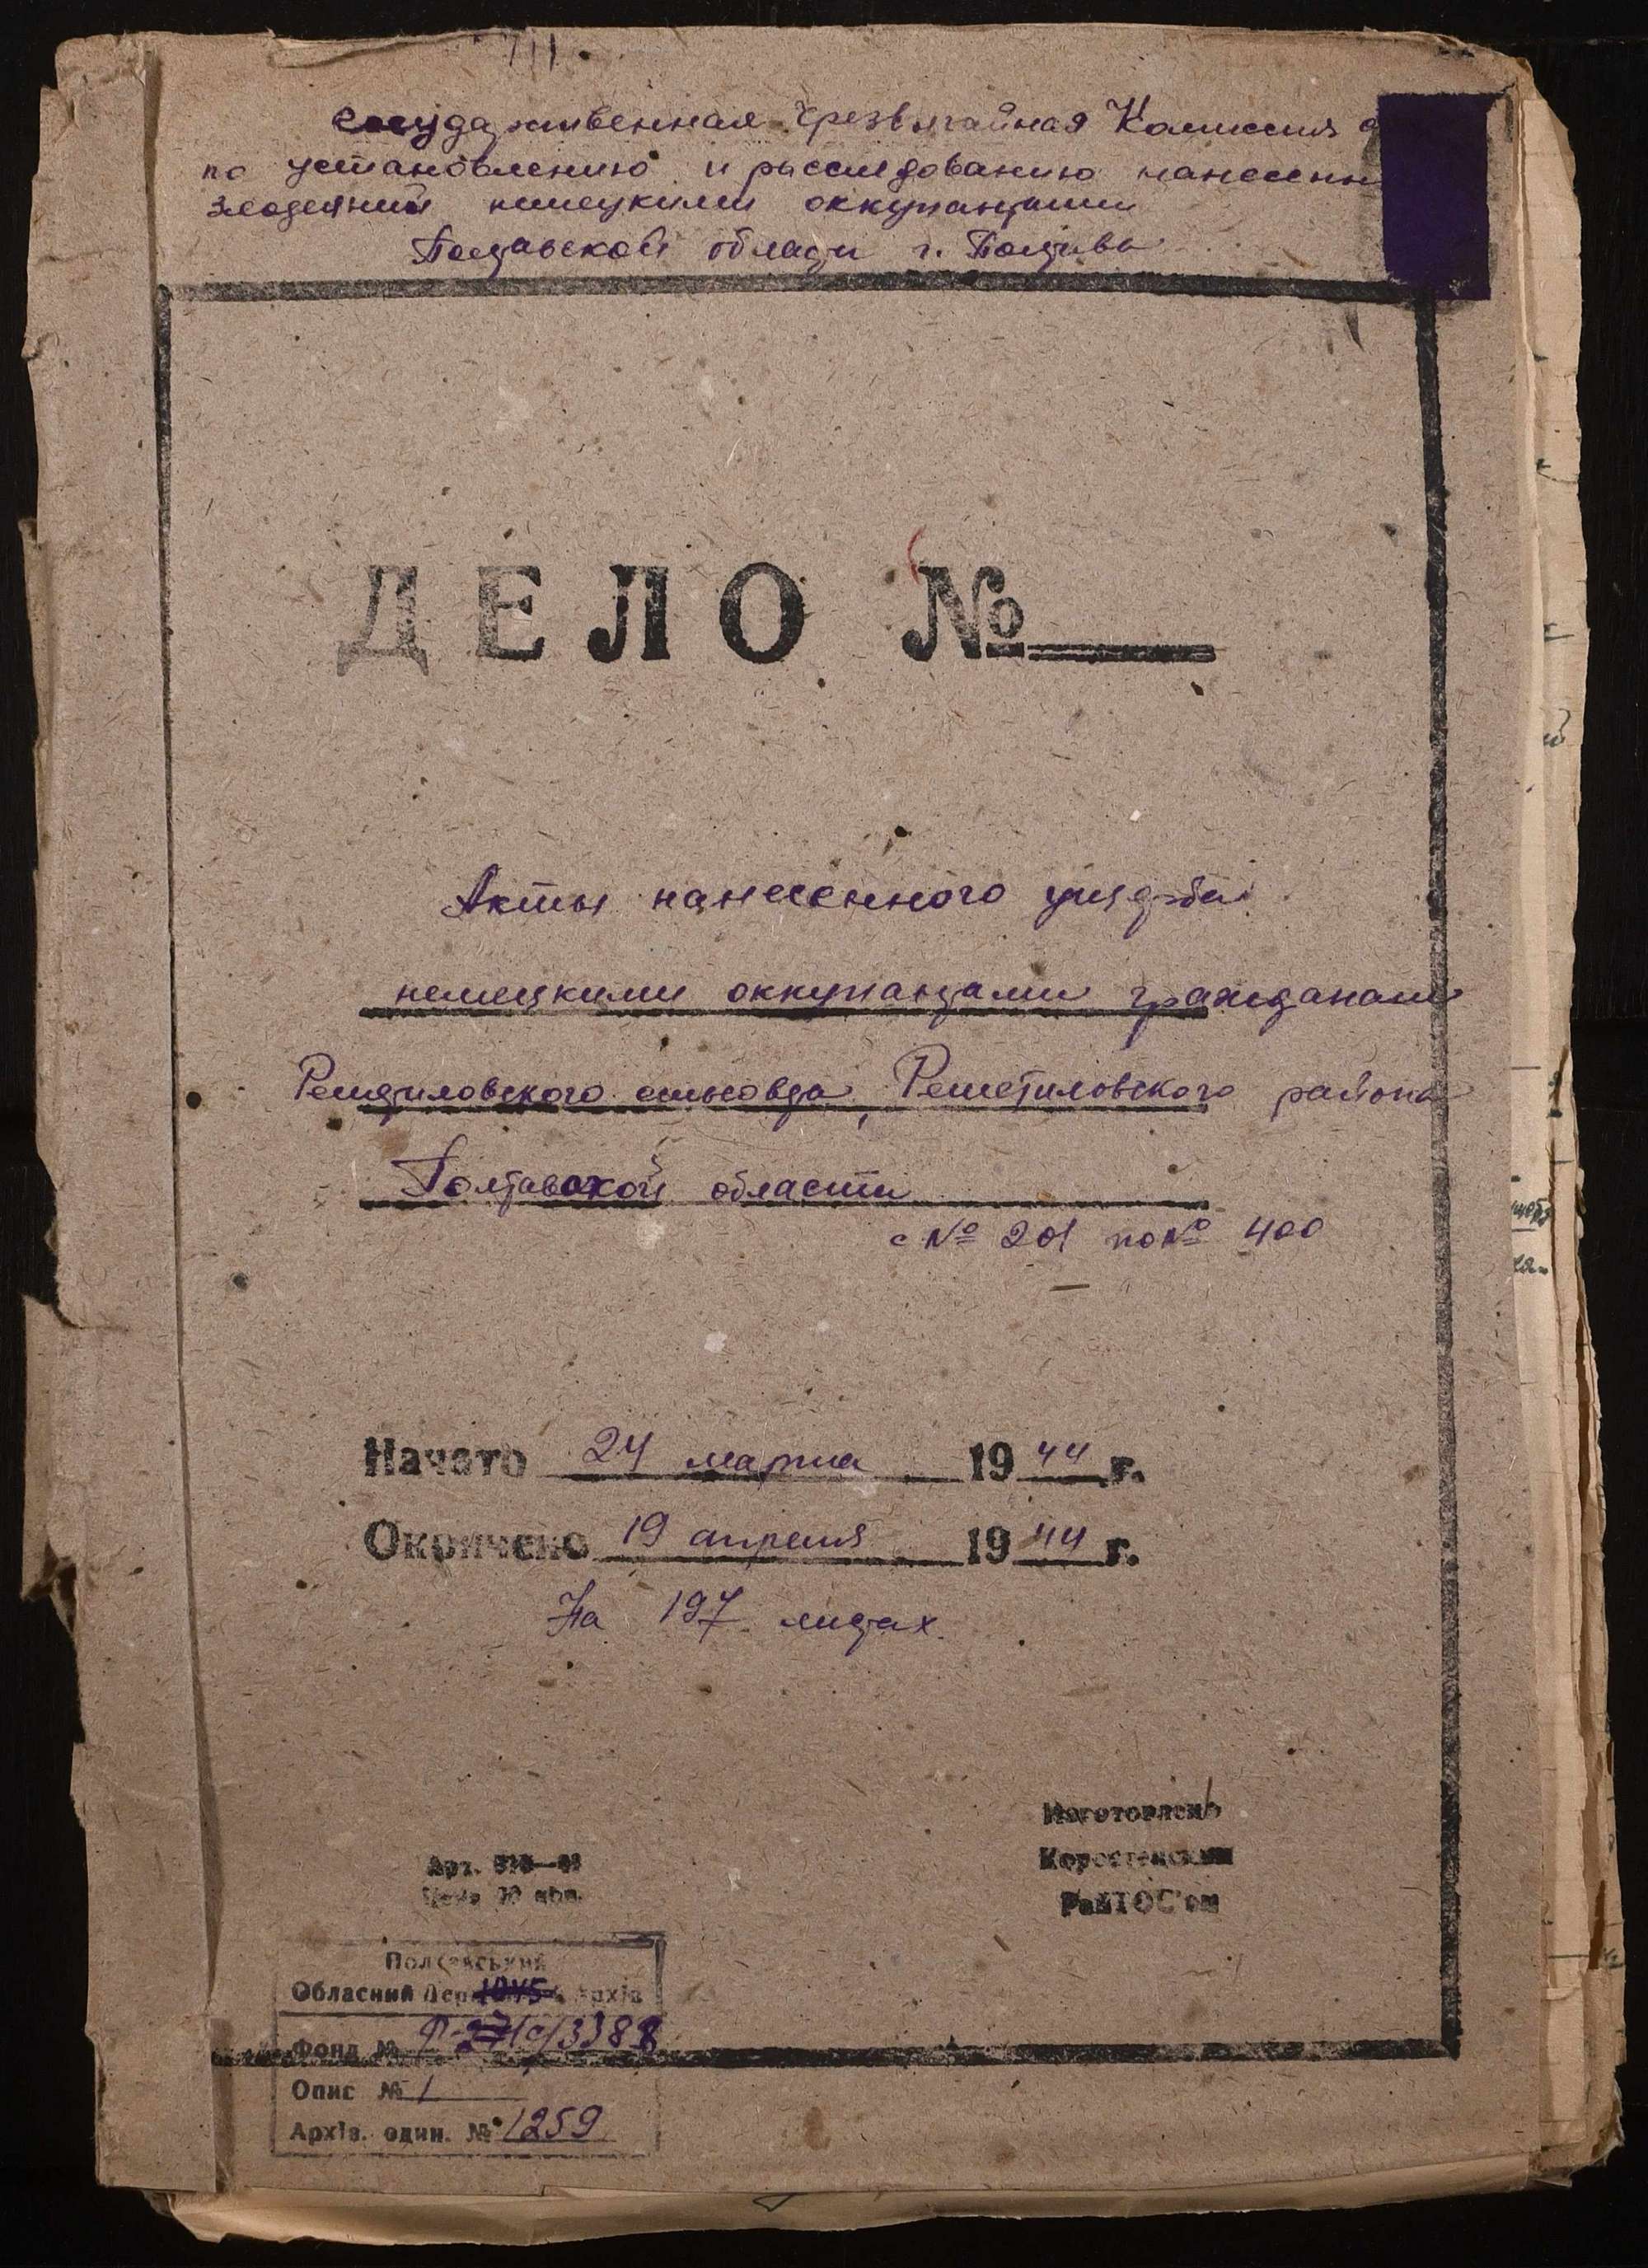 Государственная Чрезвычайная Комиссия
по установлению и расследованию нанесенн
злодеяний немецкими оккупантами
Полтавской облasti г. Полтава
ДЕЛО №
Акты нанесенного ущерба
немецкими оккупантами гражданам
Решетиловского сельсовета, Решетиловского района
Полтавской области
с № 201 по № 400
Начато 24 марта 1944 г.
Окончено 19 апреля 1944 г.
На 197 листах.
Изготовлено
Коростенским
Арт.
Цена коп.
Полтавський
Обласний Держ Архів
Фонд № 3388
Опис № 1
Архів. один. № 1259